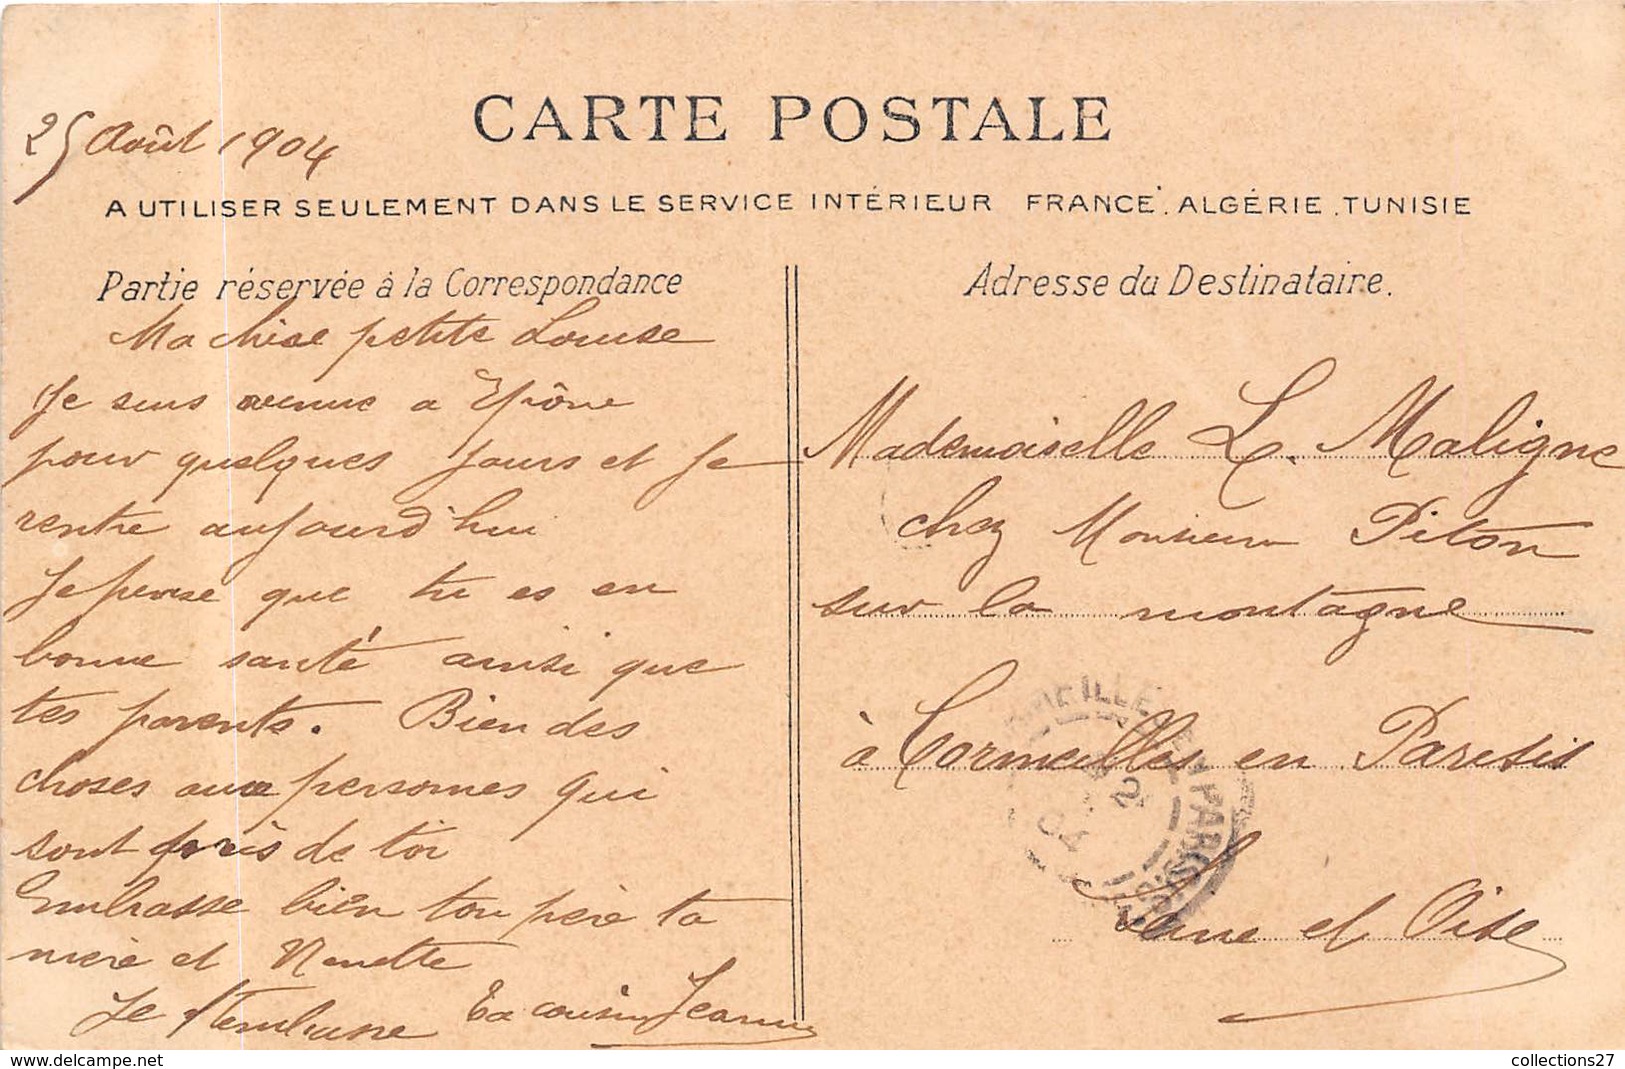 25 Août 1904
CARTE POSTALE
A UTILISER SEULEMENT DANS LE SERVICE INTÉRIEUR FRANCE. ALGÉRIE. TUNISIE
Partie réservée à la Correspondance
Ma chère petite Louise
Je suis venue a Epône
pour quelques jours et je
rentre aujourd'hui
Je pense que tu es en
bonne santé ainsi que
tes parents. Bien des
choses aux personnes qui
sont près de toi
Embrasse bien ton père ta
mère et Nenette
Je t'embrasse Ta cousine Jeanne
Adresse du Destinataire.
Mademoiselle L. Maligne
chez Monsieur Piton
sur la montagne
à Cormeilles en Parisis
Seine et Oise
collections27